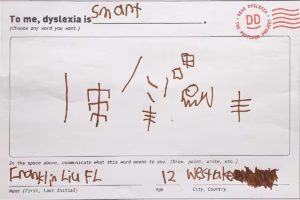 To me, dyslexia is smart.
(Choose any word you want.)
DEAR DYSLEXIA
DD
POSTCARD PROJECT
In the space above, communicate what this word means to you (Draw, paint, write, etc.)
Franklin Liu FL 12
Name (First, Last Initial) Age City, Country